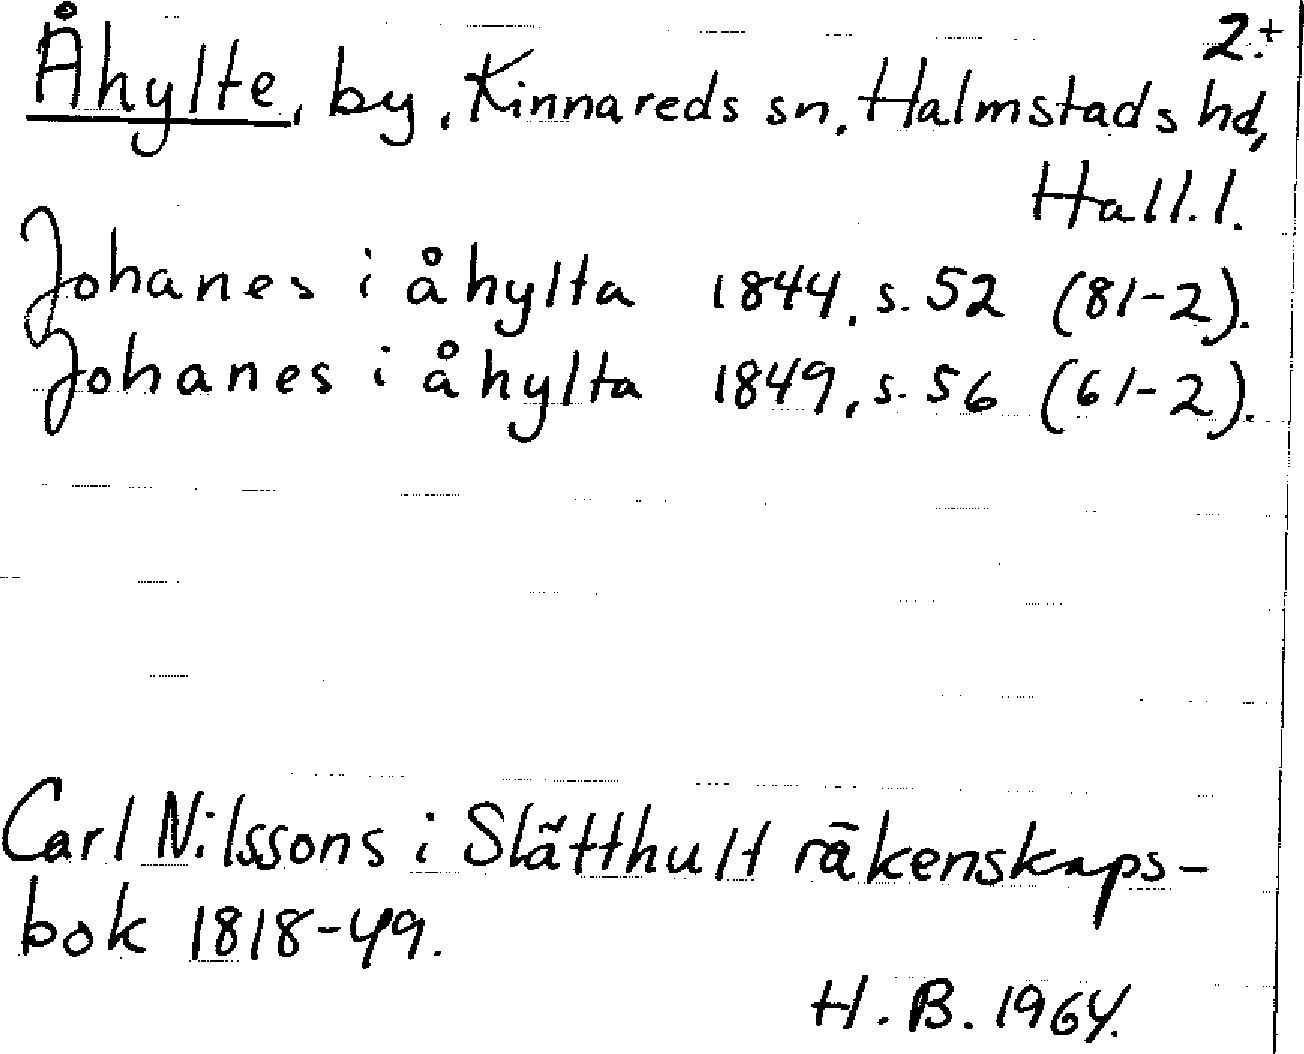 2.+
Åhylte, by, Kinnareds sn, Halmstads hd,
Hall.l.
Johanes i åhylta 1844, s. 52 (81-2).
Johanes i åhylta 1849, s. 56 (61-2).
Carl Nilssons i Slätthult räkenskaps-
bok 1818-49.
H. B. 1964.